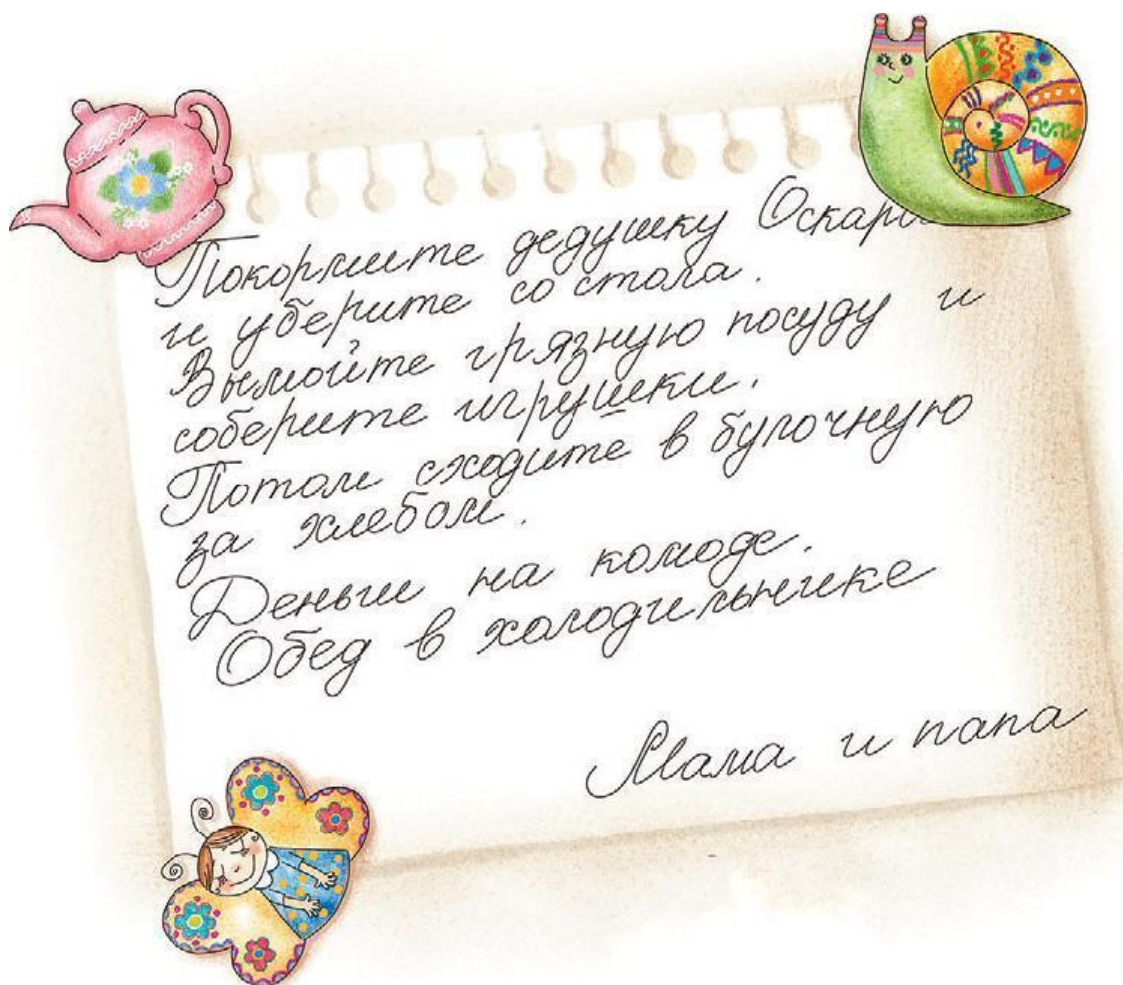 Покормите дедушку
и уберите со стола.
Вымойте грязную посуду и
соберите игрушки.
Потом сходите в булочную
за хлебом.
Деньги на комоде.
Обед в холодильнике
Мама и папа